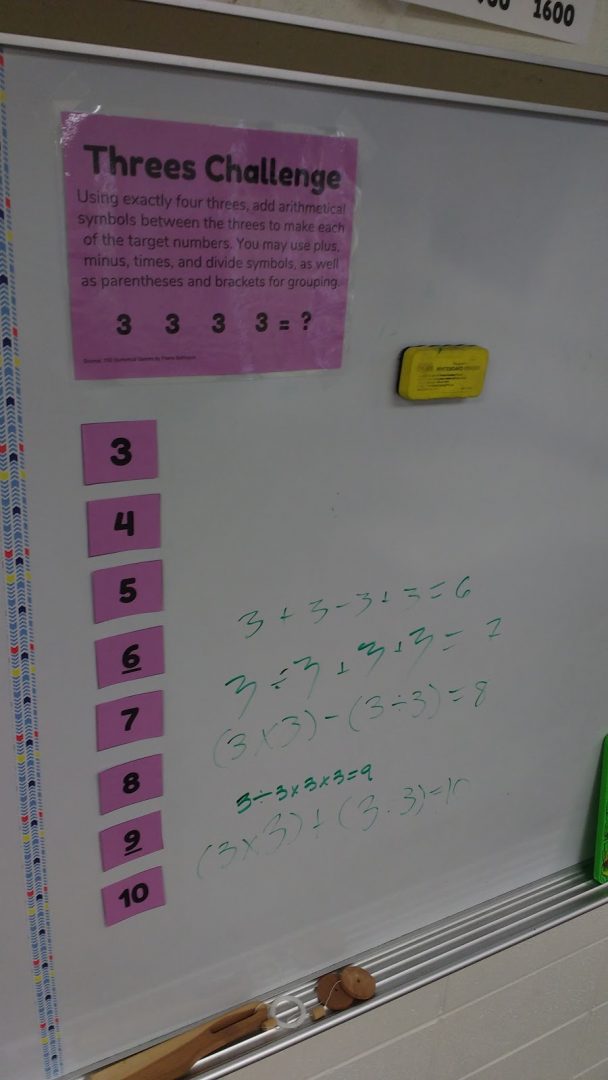 1600
Threes Challenge
Using exactly four threes, add arithmetical
symbols between the threes to make each
of the target numbers. You may use plus,
minus, times, and divide symbols, as well
as parentheses and brackets for grouping.
3 3 3 3 = ?
3
4
5
6
7
8
9
10
3 + 3 - 3 + 3 = 6
3 ÷ 3 + 3 + 3 = 7
(3 x 3) - (3 ÷ 3) = 8
3 ÷ 3 x 3 x 3 = 9
(3 x 3) + (3 . 3) = 10